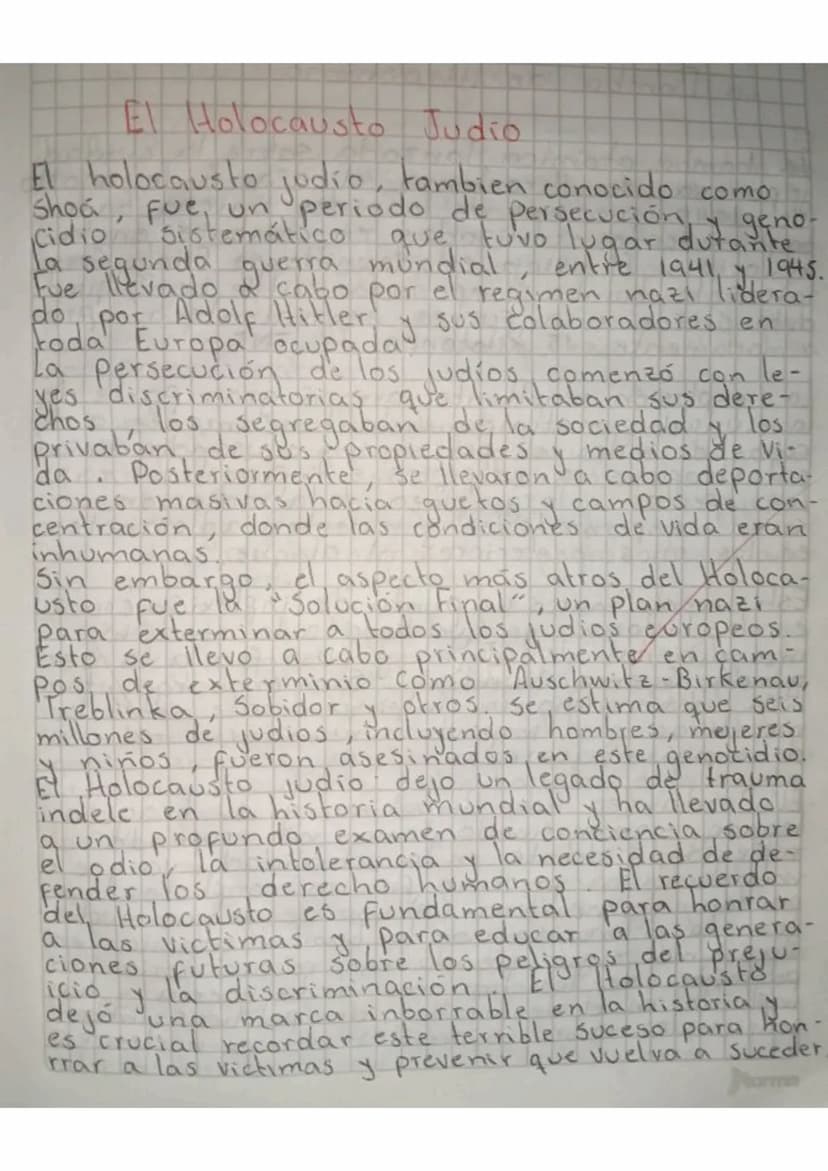 El Holocausto Judio
El holocausto judio, tambien conocido como
Shoá, fue, un periodo de persecución y geno-
cidio sistemático que tuvo lugar durante
la segunda guerra mundial, entre 1941 y 1945.
Fue llevado a cabo por el regimen nazi lidera-
do por Adolf Hitler y sus colaboradores en
toda Europa ocupada
La persecución de los judíos comenzó con le-
yes discriminatorias que limitaban sus dere-
chos, los segregaban de la sociedad y los
privaban de sus propiedades y medios de vi-
da. Posteriormente, se llevaron a cabo deporta-
ciones masivas hacia guetos y campos de con-
centración, donde las condiciones de vida eran
inhumanas.
Sin embargo, el aspecto más atros del Holoca-
usto fue la "Solución Final", un plan nazi
para exterminar a todos los judios europeos.
Esto se llevo a cabo principalmente en cam-
pos de exterminio como Auschwitz-Birkenau,
Treblinka, Sobidor y otros. se estima que seis
millones de judios, incluyendo hombres, mejeres
y niños, fueron asesinados en este genocidio.
El Holocausto judio dejo un legado de trauma
indele en la historia mundial y ha llevado
a un profundo examen de conciencia sobre
el odio, la intolerancia y la necesidad de de-
fender los derecho humanos. El recuerdo
del Holocausto es fundamental para honrar
a las victimas y para educar a las genera-
ciones futuras sobre los peligros del preju-
icio y la discriminación. El Holocausto
dejó una marca inborrable en la historia y
es crucial recordar este terrible suceso para Hon-
rrar a las victimas y prevenir que vuelva a suceder
norma